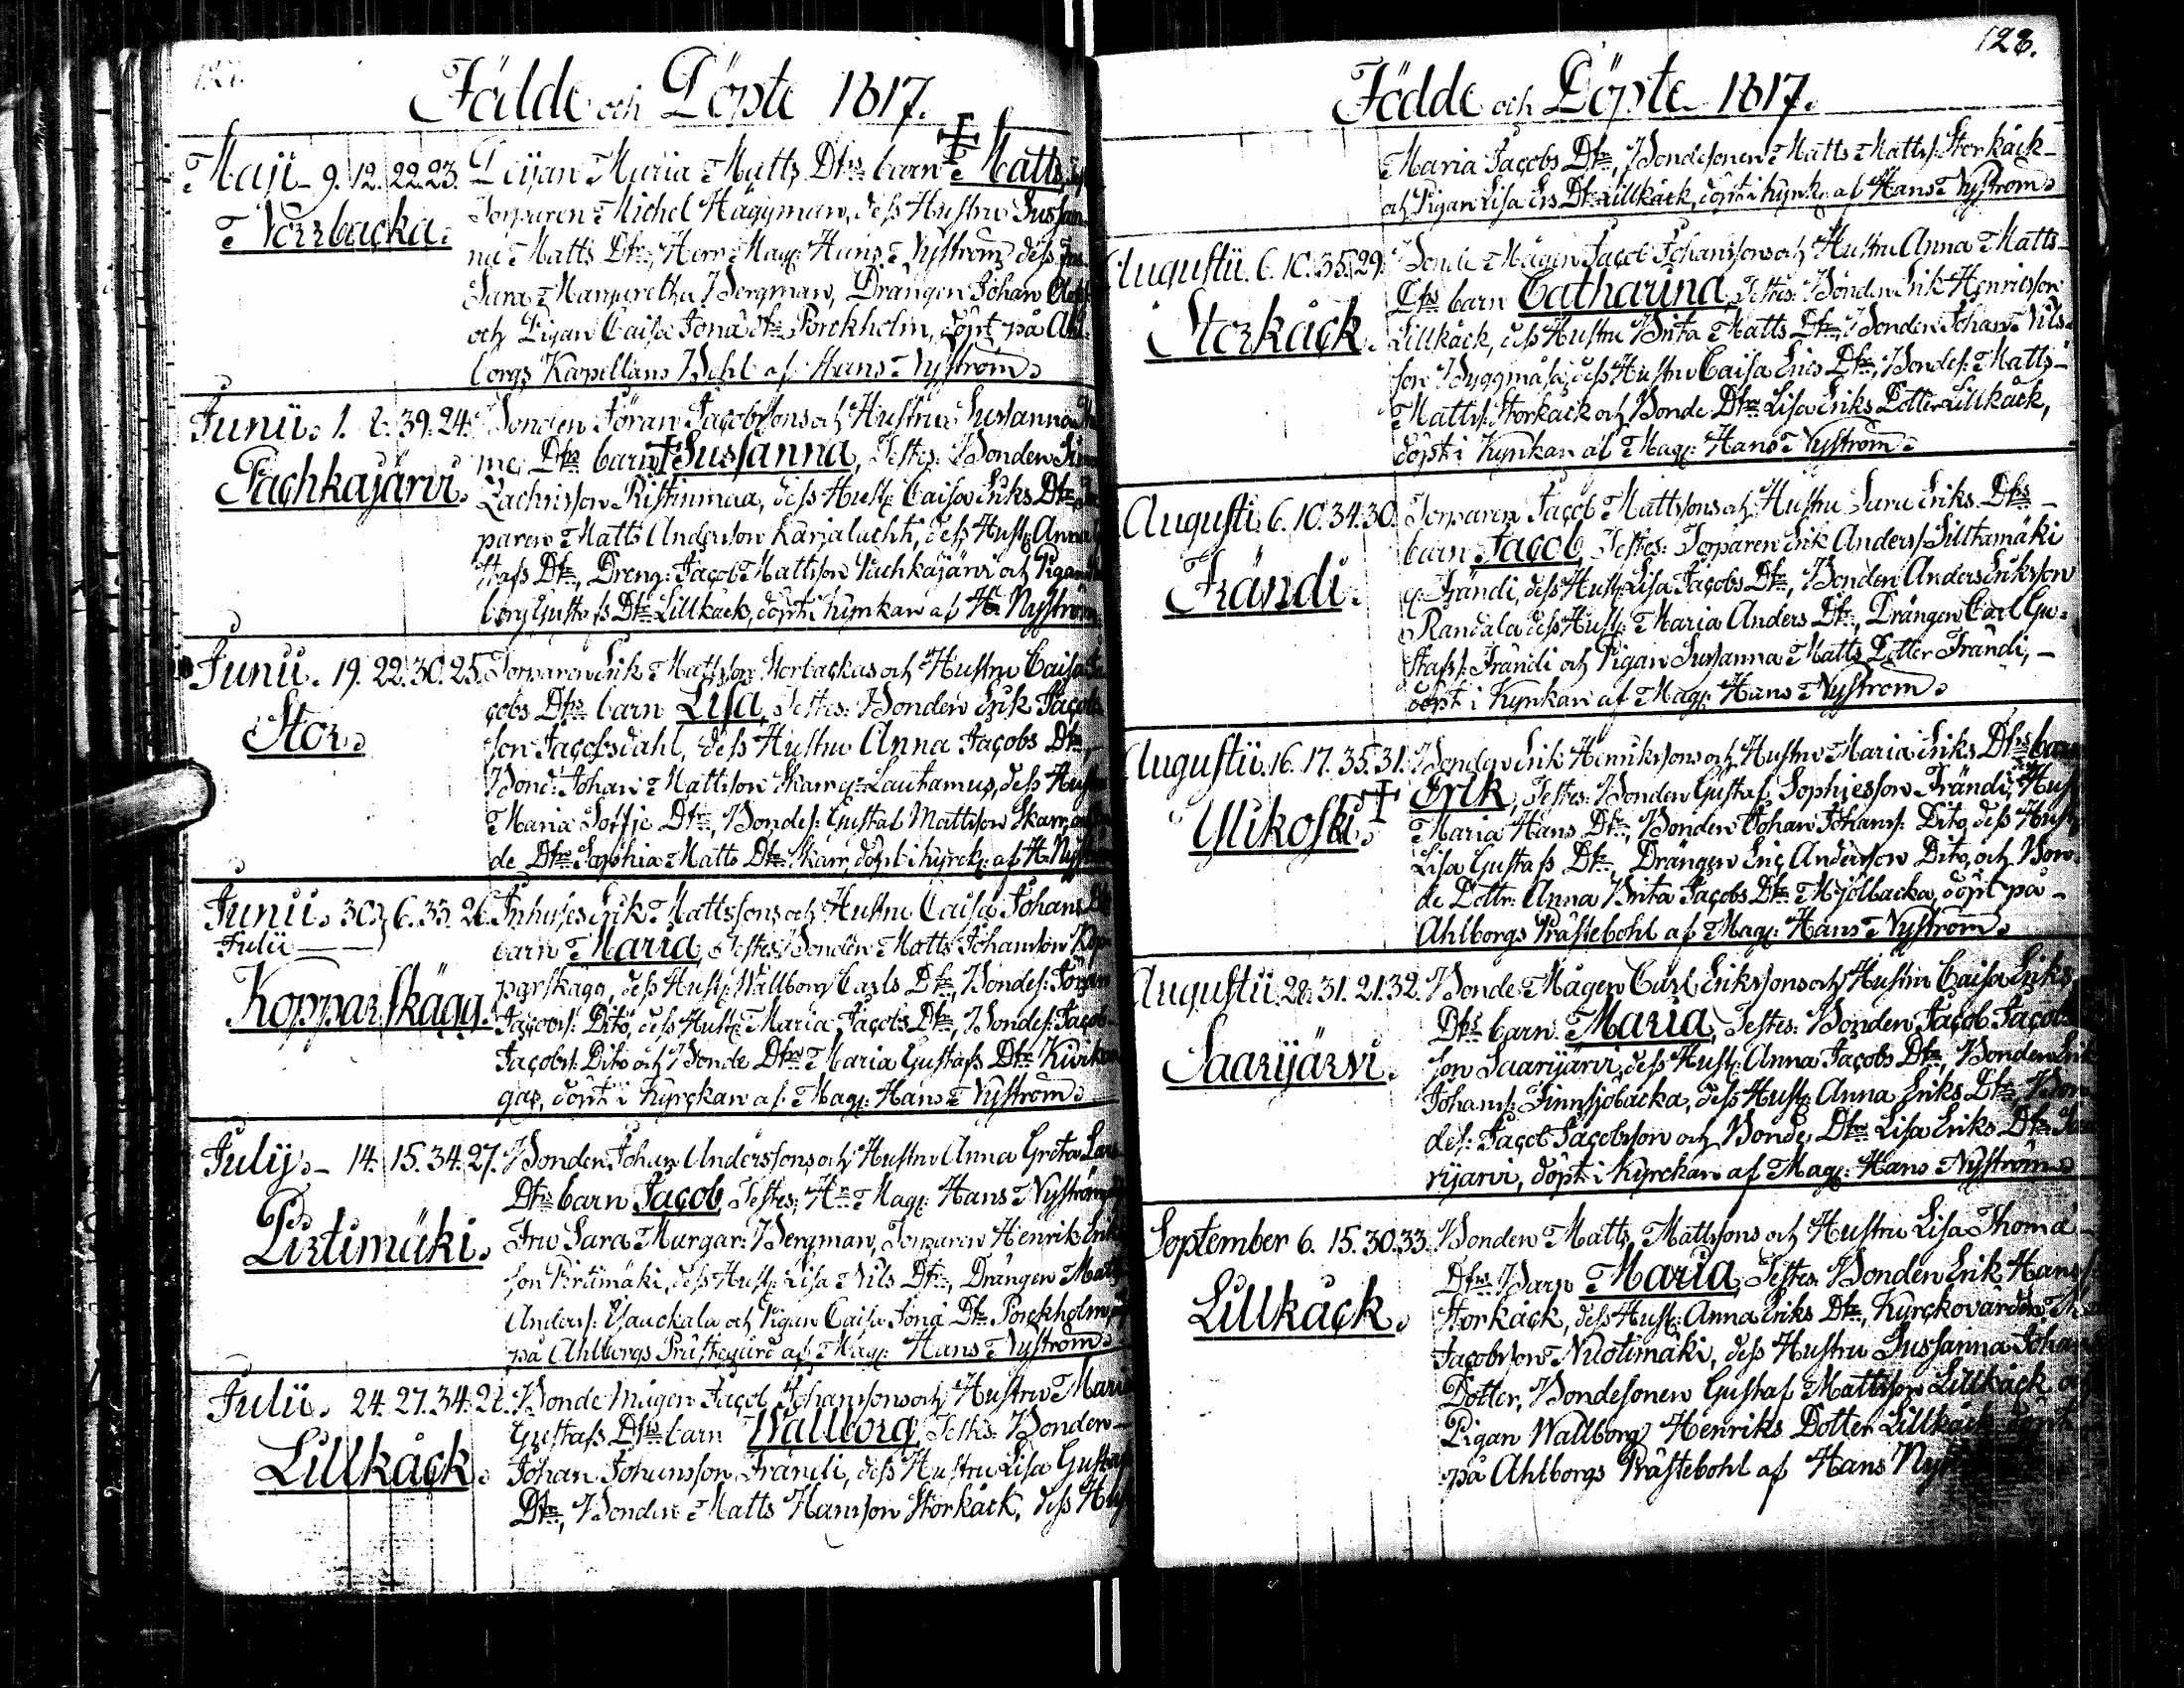 127.
Födde och Döpte 1817.
Maji 9. 12. 22. 23. Pigan Maria Matts Dtrs barn † Matts,
Norrbacka. Torparen Michel Häggman, dess Hustru Susan
na Matts Dtr, Herr Mag: Hans Nyström dess Fru
Sara Margaretha Bergman, Drängen Johan
och Pigan Caisa Jona Dtr Porkholm, döpt på Ahl-
borgs Kapellans Bohl af Hans Nyström.
Junii. 1. 8. 39. 24. Bonden Jöran Jacobssons och Hustru Susanna
Pachkajärvi. Dtrs barn † Susanna, Testes: Bonden
Zachrisson Ristinmaa, dess Hust: Caisa Eriks Dtr,
paren Matts Andersson Karjaluchti, dess Hust: Anna
stafs Dtr, Dreng: Jacob Mattsson Pachkajärvi och Pigan
borg Gustafs Dtr Lillkäck, döpt i kyrkan af H. Nyström
Junii. 19. 22. 30. 25. Torparen Erik Mattsson Storbackas och Hustru Caisa Ja
Stor. cobs Dtrs barn Lisa, Testes: Bonden Erik Jacobs
son Jacobsdahl, dess Hustru Anna Jacobs Dtr,
Bond: Johan Mattsson Skarr q: Lautamus, dess Hust
Maria Soffje Dtr, Bondes: Gustaf Mattsson Skarr,
de Dtr Sophia Matts Dtr Skarr, döpt i kyrck: af H. Nyst
Junii. 30 } 6. 33. 26. Inhyses Erik Mattssons och Hustru Caisa Johans
Julii
Kopparskägg. barn Maria, Testes: Bonden Matts Johansson Kop
parskägg, dess Hust: Wallborg Carls Dtr, Bondes: Jöran
Jacobs: Dito, dess Hust: Maria Jacobs Dtr, Bondes: Jacob
Jacobs: Dito och Bonde Dtr Maria Gustafs Dtr Kivikan
gas, döpt i Kyrckan af Mag: Hans Nyström.
Julij. 14. 15. 34. 27. Bonden Johan Anderssons och Hustru Anna Greta
Pirtimäki. Dtrs barn Jacob, Testes: Hr Mag: Hans Nyström
Fru Sara Margar: Bergman, Torparen Henrik Erik
son Pirtimäki, dess Hust: Lisa Nils Dtr, Drängen Matts
Anders: och Pigan Caisa Jona Dtr Porckholm,
på Ahlborgs Prästegård af Mag: Hans Nyström.
Julii. 24. 27. 34. 28. Bonde Mågen Jacob Johanssons och Hustru Maria
Lillkäck. Gustafs Dtrs barn Wallborg, Testes: Bonden
Johan Johansson Frändi, dess Hustru Lisa Gustafs
Dtr, Bonden Matts Hansson Storkäck, dess Hust
128.
Födde och Döpte 1817.
Maria Jacobs Dtr, Bondesonen Matts Matts: Storkäck
och Pigan Lisa Ers Dtr Lillkäck, döpt i kyrk: af Hans Nyström.
Augustii. 6. 10. 35. 29. Bonde Mågen Jacob Johanssons och Hustru Anna Matts
Storkäck. Dtrs barn Catharina, Testes: Bonden Erik Henricsson
Lillkäck, dess Hustru Brita Matts Dtr, Bonden Johan Nils-
son Byggmäsa, dess Hustru Caisa Eriks Dtr, Bondes: Matts
Matts: Storkäck och Bonde Dtr Lisa Eriks Dotter Lillkäck,
döpt i Kyrkan af Mag: Hans Nyström.
Augusti. 6. 10. 34. 30. Torparen Jacob Mattssons och Hustru Sara Eriks Dtrs
Frändi. barn Jacob, Testes: Torparen Erik Anders: Siltamäki
q: Frändi, dess Hust: Lisa Jacobs Dtr, Bonden Anders Eriksson
Randala dess Hust: Maria Anders Dtr, Drängen Carl Gu-
stafs: Frändi och Pigan Susanna Matts Dotter Frändi,
döpt i Kyrkan af Mag: Hans Nyström.
Augustii. 16. 17. 35. 31. Bonden Erik Henrikssons och Hustru Maria Eriks Dtrs barn
Ylikoski. † Erik, Testes: Bonden Gustaf Sophiesson Frändi, dess Hust
Maria Hans Dtr, Bonden Johan Johans: Dito, dess Hust:
Lisa Gustafs Dtr, Drängen Eric Andersson Dito, och Bon-
de Dottr: Anna Brita Jacobs Dtr Mjölbacka, döpt på
Ahlborgs Prästebohl af Mag: Hans Nyström.
Augustii. 28. 31. 21. 32. Bonde Mågen Carl Erikssons och Hustru Caisa Eriks
Saarijärvi. Dtrs barn Maria, Testes: Bonden Jacob Jacobs
son Saarijärvi, dess Hust: Anna Jacobs Dtr, Bonden Erik
Johans: Finnsjöbacka, dess Hust: Anna Eriks Dtr, Bon
des: Jacob Jacobsson och Bonde Dtr Lisa Eriks Dtr Saa
rijärvi, döpt i Kyrckan af Mag: Hans Nyström.
September 6. 15. 30. 33. Bonden Matts Mattssons och Hustru Lisa Thoma
Lillkäck. Dtrs Barn Maria, Testes: Bonden Erik Hans:
Storkäck, dess Hust: Anna Eriks Dtr, Kyrckovärden
Jacobsson Nuotimäki, dess Hustru Susanna Johans
Dotter, Bondesonen Gustaf Mattsson Lillkäck och
Pigan Wallborg Henriks Dotter Lillkäck döpt
på Ahlborgs Prästebohl af Hans Nyström